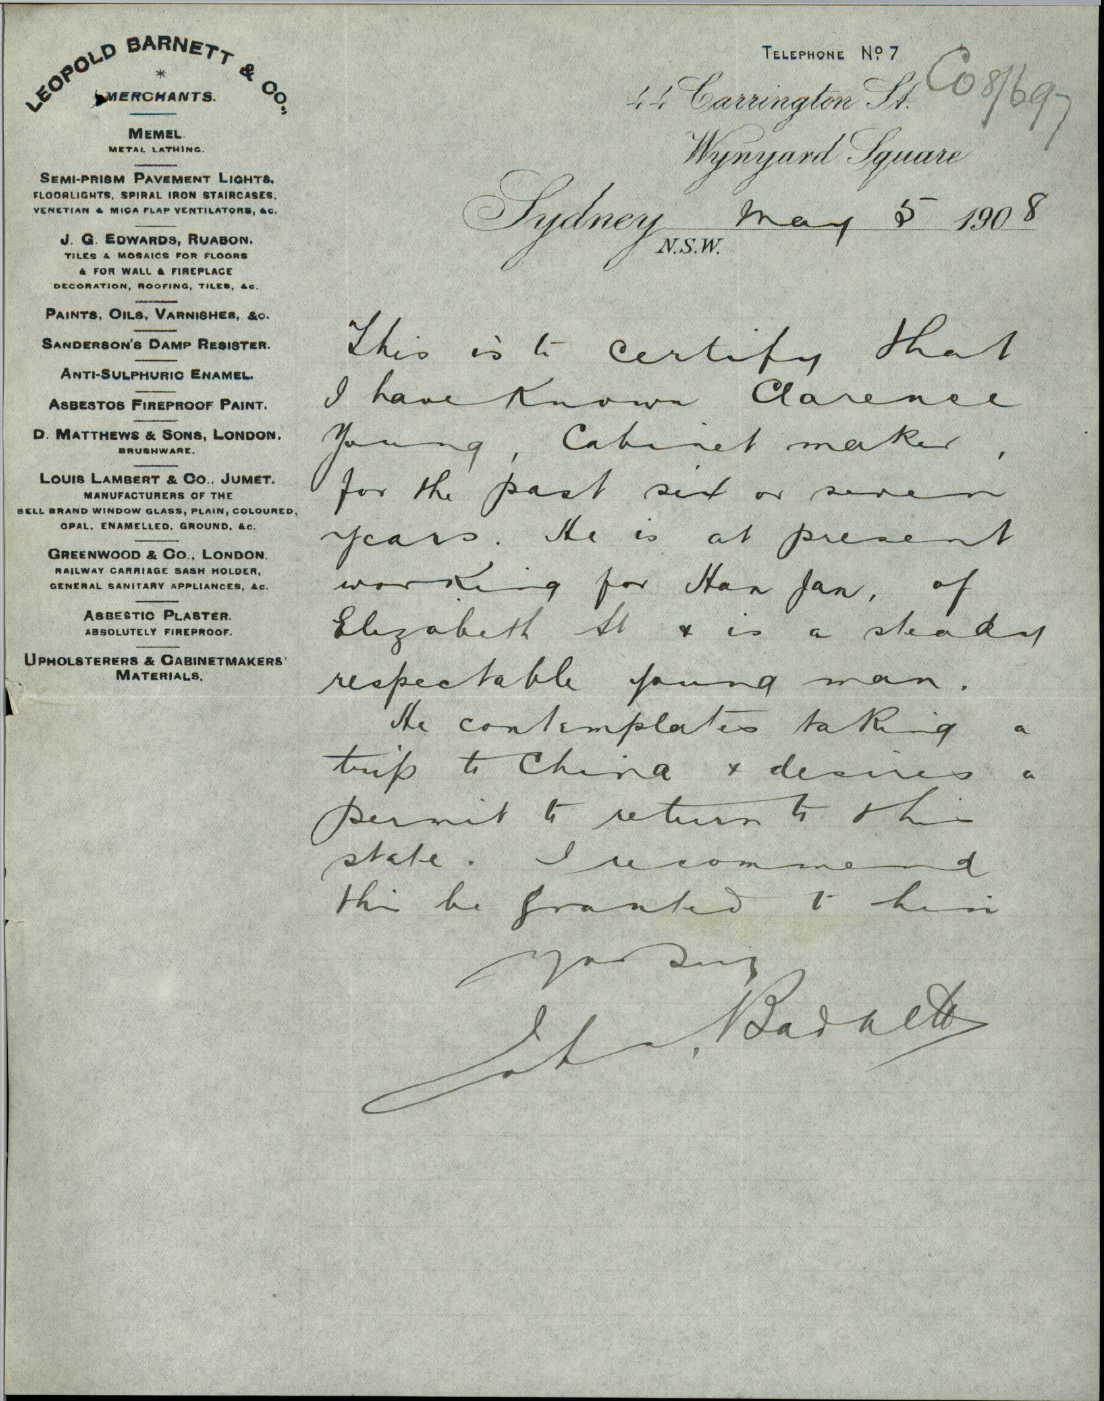 LEOPOLD BARNETT & CO.,
MERCHANTS.
MEMEL
METAL LATHING.
SEMI-PRISM PAVEMENT LIGHTS,
FLOORLIGHTS, SPIRAL IRON STAIRCASES,
VENETIAN & MICA FLAP VENTILATORS, &c.
J. G. EDWARDS, RUABON.
TILES & MOSAICS FOR FLOORS
& FOR WALL & FIREPLACE
DECORATION, ROOFING, TILES, &c.
PAINTS, OILS, VARNISHES, &c.
SANDERSON'S DAMP RESISTER.
ANTI-SULPHURIC ENAMEL.
ASBESTOS FIREPROOF PAINT.
D. MATTHEWS & SONS, LONDON.
BRUSHWARE.
LOUIS LAMBERT & CO., JUMET.
MANUFACTURERS OF THE
BELL BRAND WINDOW GLASS, PLAIN, COLOURED,
OPAL, ENAMELLED, GROUND, &c.
GREENWOOD & CO., LONDON.
RAILWAY CARRIAGE SASH HOLDER,
GENERAL SANITARY APPLIANCES, &c.
ASBESTIC PLASTER.
ABSOLUTELY FIREPROOF.
UPHOLSTERERS & CABINETMAKERS'
MATERIALS.
TELEPHONE No. 7
Co 8/697
44 Carrington St.
Wynyard Square
Sydney May 5 1908
N.S.W.
This is to certify that
I have known Clarence
Young, Cabinet maker,
for the past six or seven
years. He is at present
working for Han Jan, of
Elizabeth St & is a steady
respectable young man.
He contemplates taking a
trip to China & desires a
permit to return to this
state. I recommend
this be granted to him
Barnett